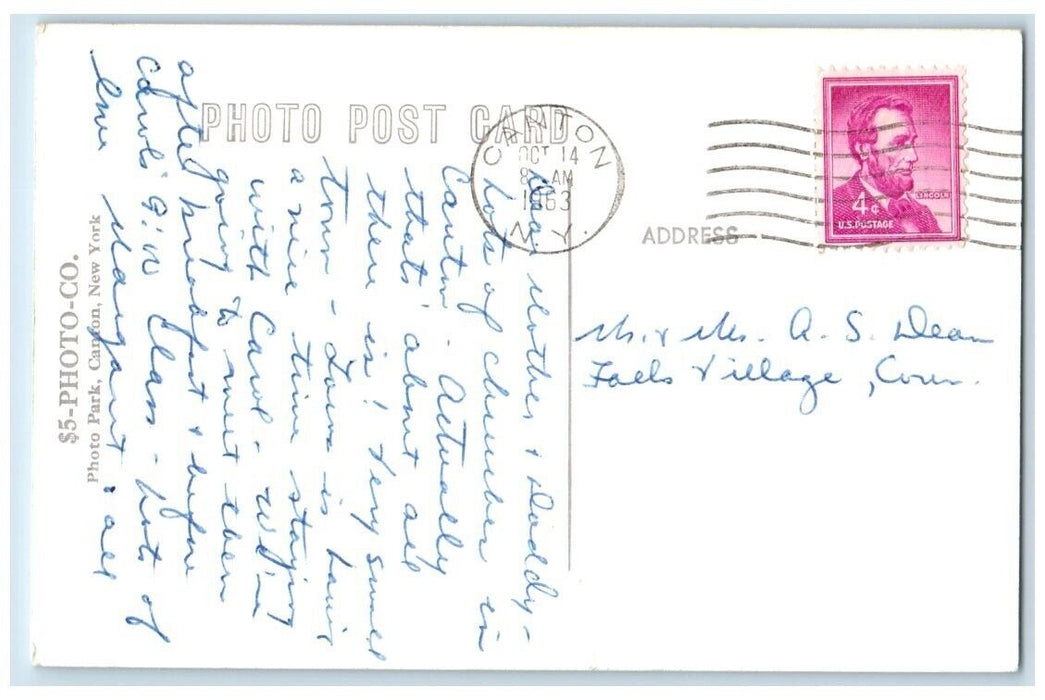 PHOTO POST CARD
CANTON
OCT 14
8 AM
1963
N.Y.
LINCOLN
4¢
U.S. POSTAGE
ADDRESS
Mr. & Mrs. A. S. Dean
Falls Village, Conn.
Dear Mother & Daddy-
Lots of churches in
Canton - Actually
that's about all
there is! Very small
town - is having
a nice time staying
with Carol - We're
going to meet them
after breakfast & before
Carol's 9:00 class - Lots of
love Margaret & all
$5-PHOTO-CO.
Photo Park, Canton, New York